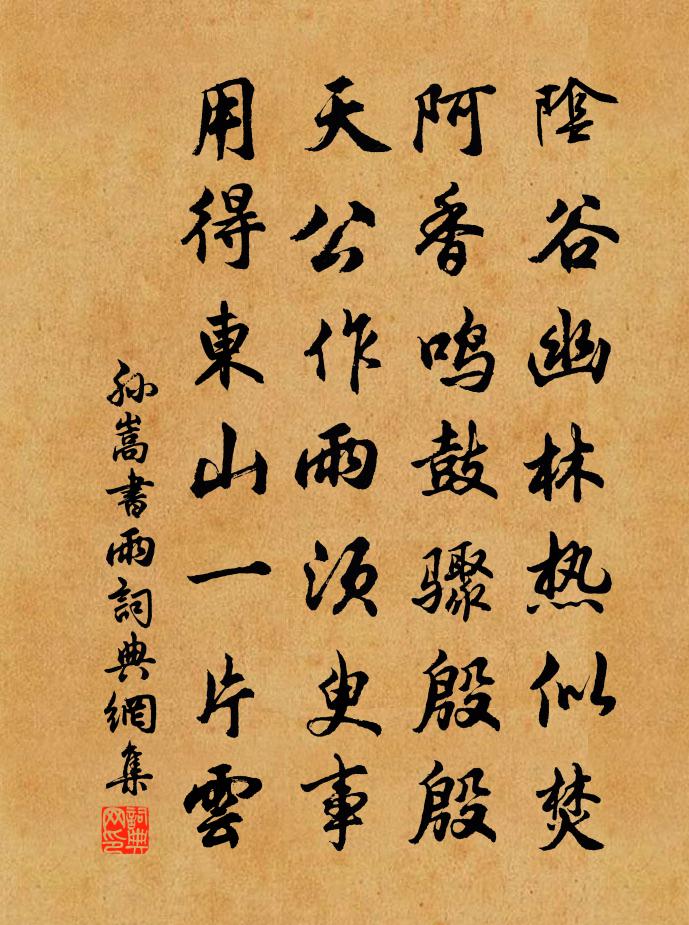 陰谷幽林热似焚
阿香鸣鼓骤殷殷
天公作雨須臾事
用得東山一片雲
孙嵩書雨詞典網集
詞典网印